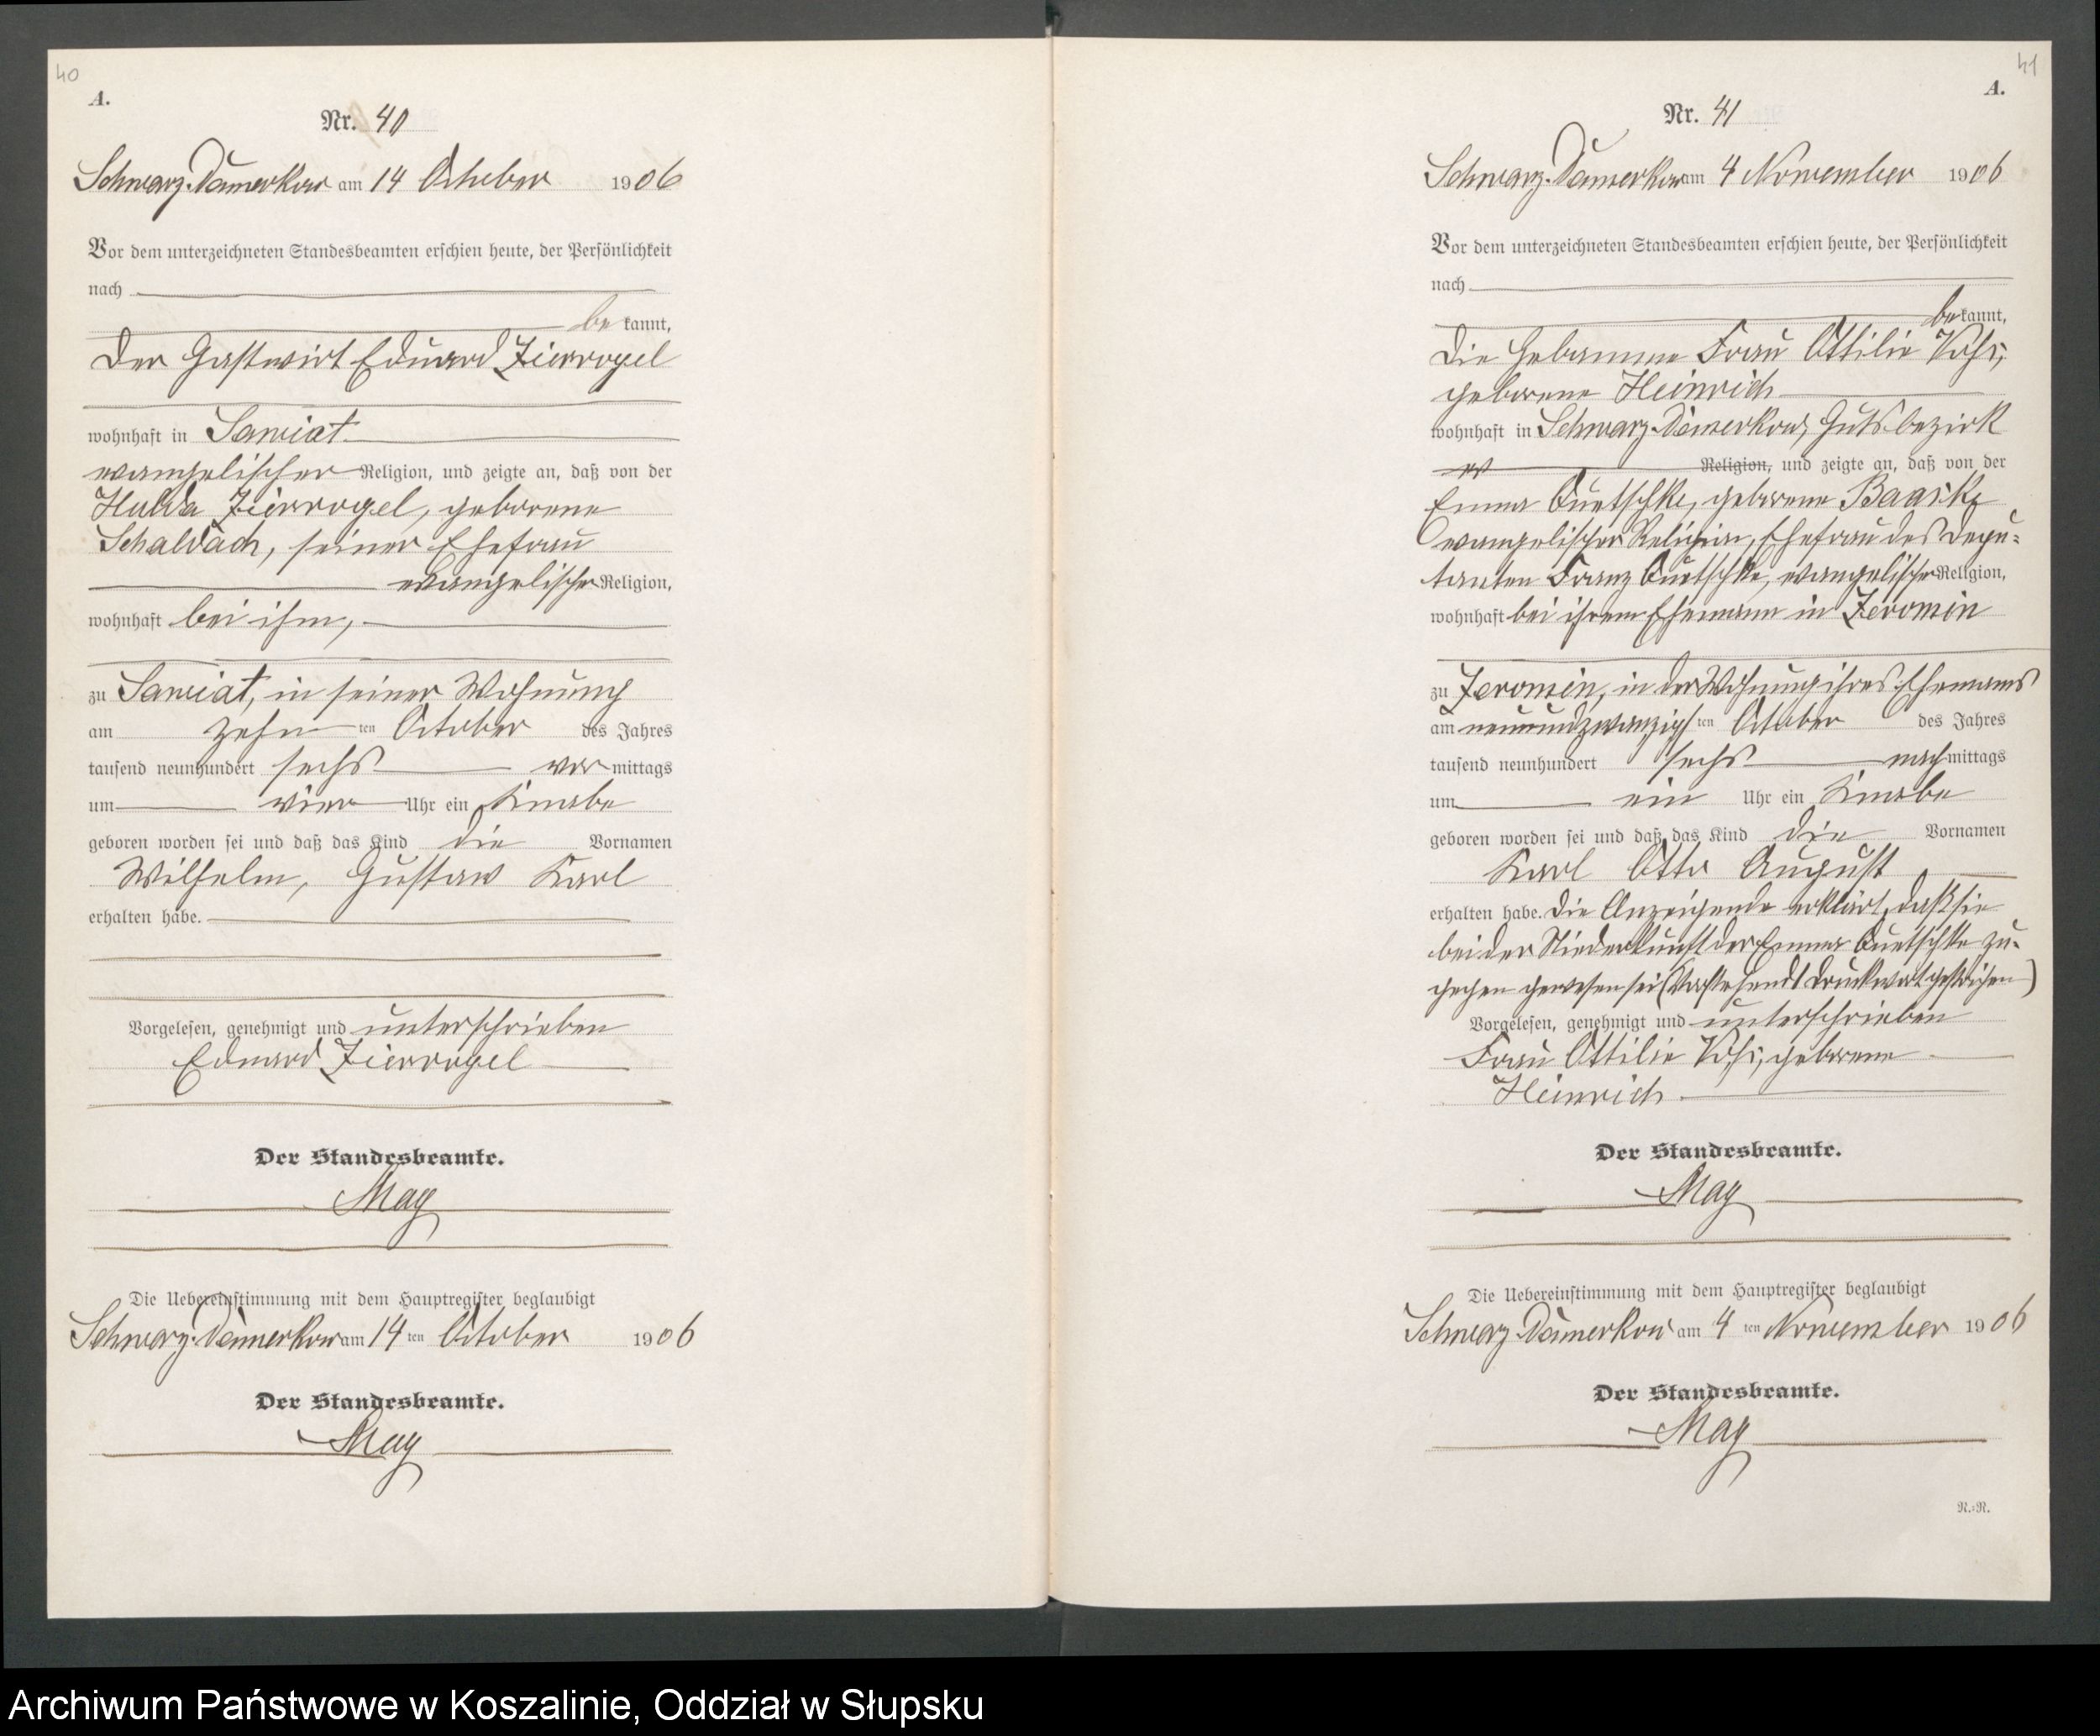 40
A.
Nr. 40
Schwarz-Damerkow am 14 October 1906
Vor dem unterzeichneten Standesbeamten erschien heute, der Persönlichkeit
nach
be kannt,
Der Gastwirt Eduard Ziervogel
wohnhaft in Saviat
evangelischer Religion, und zeigte an, daß von der
Hulda Ziervogel, geborene
Schaldach, seiner Ehefrau
evangelischer Religion,
wohnhaft bei ihm,
zu Saviat, in seiner Wohnung
am zehn ten October des Jahres
tausend neunhundert sechs vor mittags
um vier Uhr ein Knabe
geboren worden sei und daß das Kind die Vornamen
Wilhelm, Gustav Karl
erhalten habe.
Vorgelesen, genehmigt und unterschrieben
Eduard Ziervogel
Der Standesbeamte.
May
Die Uebereinstimmung mit dem Hauptregister beglaubigt
Schwarz-Damerkow am 14 ten October 1906
Der Standesbeamte.
May
41
A.
Nr. 41
Schwarz-Damerkow am 4 November 1906
Vor dem unterzeichneten Standesbeamten erschien heute, der Persönlichkeit
nach
be kannt,
Die Hebamme Frau Ottilie
geborene Heinrich
wohnhaft in Schwarz-Damerkow, Gutsbezirk
ev Religion, und zeigte an, daß von der
Emma Quetschke, geborene Baaske
evangelischer Religion, Ehefrau des Depu-
tanten Franz Quetschke, evangelischer Religion,
wohnhaft bei ihrem Ehemann in Zeromin
zu Zeromin, in der Wohnung ihres Ehemanns
am neunundzwanzigs ten October des Jahres
tausend neunhundert sechs nach mittags
um ein Uhr ein Knabe
geboren worden sei und daß das Kind die Vornamen
Karl Otto August
erhalten habe. Die Anzeigende erklärt, daß sie
bei der Niederkunft der Emma Quetschke zu-
gegen gewesen sei (Vorstehend 1 Druckwort gestrichen)
Vorgelesen, genehmigt und unterschrieben
Frau Ottilie geborene
Heinrich
Der Standesbeamte.
May
Die Uebereinstimmung mit dem Hauptregister beglaubigt
Schwarz-Damerkow am 4 ten November 1906
Der Standesbeamte.
May
R.-R.
Archiwum Państwowe w Koszalinie, Oddział w Słupsku